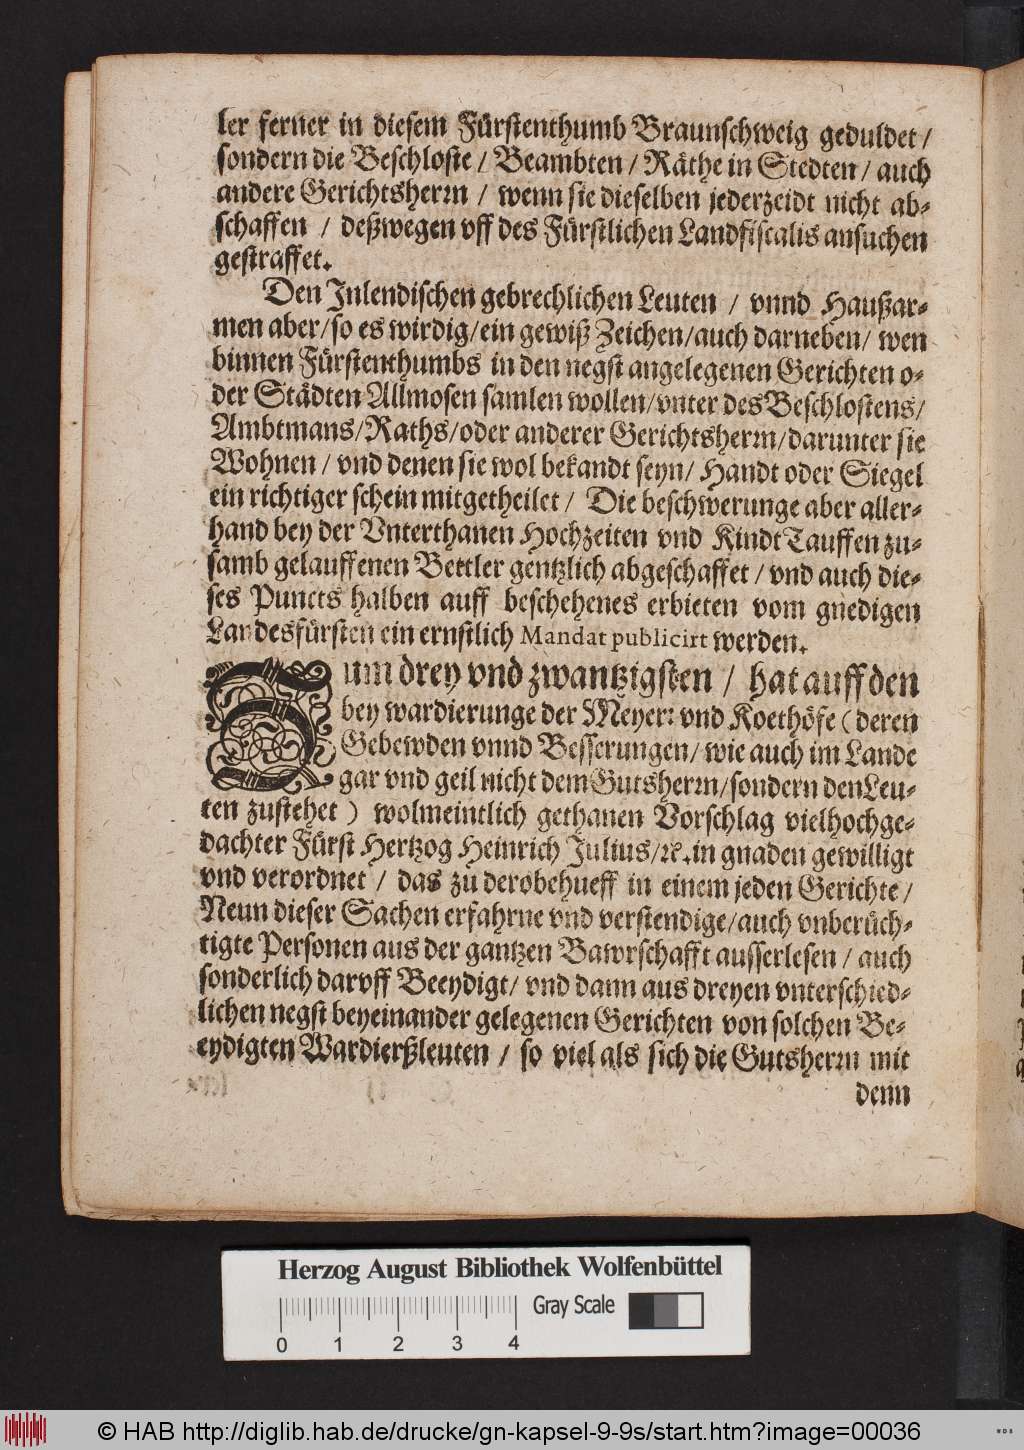 ler ferner in diesem Fürstenthumb Braunschweig geduldet /
sondern die Beschloste / Beambten / Räthe in Stedten / auch
andere Gerichtsherrn / wenn sie dieselben jederzeidt nicht ab-
schaffen / deßwegen vff des Fürstlichen Landfiscalis ansuchen
gestraffet.
Den Inlendischen gebrechlichen Leuten / vnnd Haußar-
men aber/so es wirdig/ein gewiß Zeichen/auch darneben/ wen
binnen Fürstenthumbs in den negst angelegenen Gerichten o-
der Städten Allmosen samlen wollen/vnter des Beschlostens/
Ambtmans/Raths/oder anderer Gerichtsherrn/darunter sie
Wohnen / vnd denen sie wol bekandt seyn/ Handt oder Siegel
ein richtiger schein mitgetheilet / Die beschwerunge aber aller-
hand bey der Vnterthanen Hochzeiten vnd Kindt Tauffen zu-
samb gelauffenen Bettler gentzlich abgeschaffet / vnd auch die-
ses Puncts halben auff beschehenes erbieten vom gnedigen
Landesfürsten ein ernstlich Mandat publicirt werden.
Zum drey vnd zwantzigsten / hat auff den
bey wardierunge der Meyer: vnd Koethöfe ( deren
Gebewden vnnd Besserungen/ wie auch im Lande
gar vnd geil nicht dem Gutsherrn/sondern den Leu-
ten zustehet ) wolmeintlich gethanen Vorschlag vielhochge-
dachter Fürst Hertzog Heinrich Julius/ꝛc. in gnaden gewilligt
vnd verordnet / das zu derobehueff in einem jeden Gerichte /
Neun dieser Sachen erfahrne vnd verstendige/auch vnberüch-
tigte Personen aus der gantzen Bawrschafft ausserlesen / auch
sonderlich darvff Beeydigt/ vnd dann aus dreyen vnterschied-
lichen negst beyeinander gelegenen Gerichten von solchen Be-
eydigten Wardierßleuten / so viel als sich die Gutsherrn mit
denn
Herzog August Bibliothek Wolfenbüttel
Gray Scale
0 1 2 3 4
© HAB http://diglib.hab.de/drucke/gn-kapsel-9-9s/start.htm?image=00036